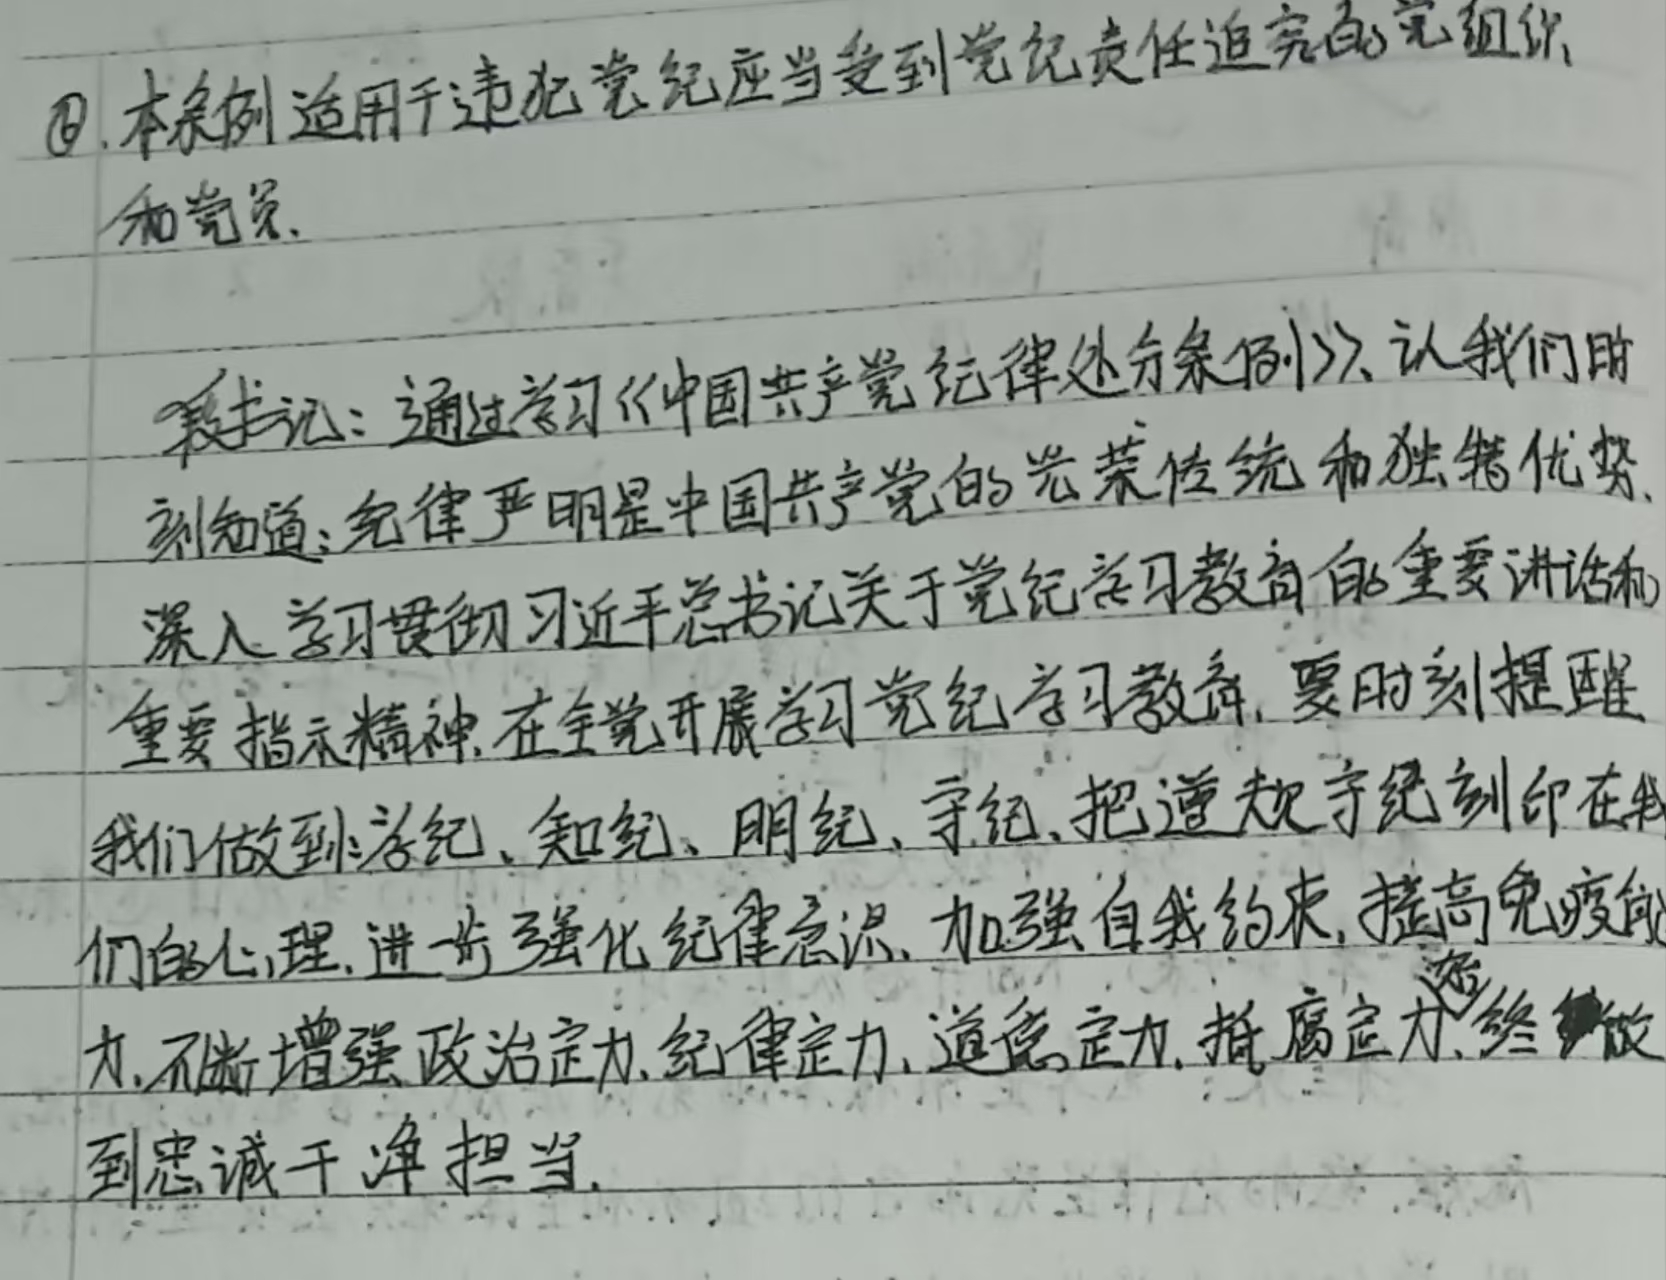 ⑥.本条例适用于违犯党纪应当受到党纪责任追究的党组织、
和党员.
段书记：通过学习《中国共产党纪律处分条例》、认我们时
刻知道：纪律严明是中国共产党的光荣传统和独特优势.
深入学习贯彻习近平总书记关于党纪学习教育的重要讲话和
重要指示精神.在全党开展学习党纪学习教育,要时刻提醒
我们做到：学纪、知纪、明纪、守纪、把遵规守纪刻印在我
们的心理.进一步强化纪律意识、加强自我约束,提高免疫能
力.不断增强政治定力.纪律定力、道德定力.抵腐定力、终做
到忠诚干净担当.